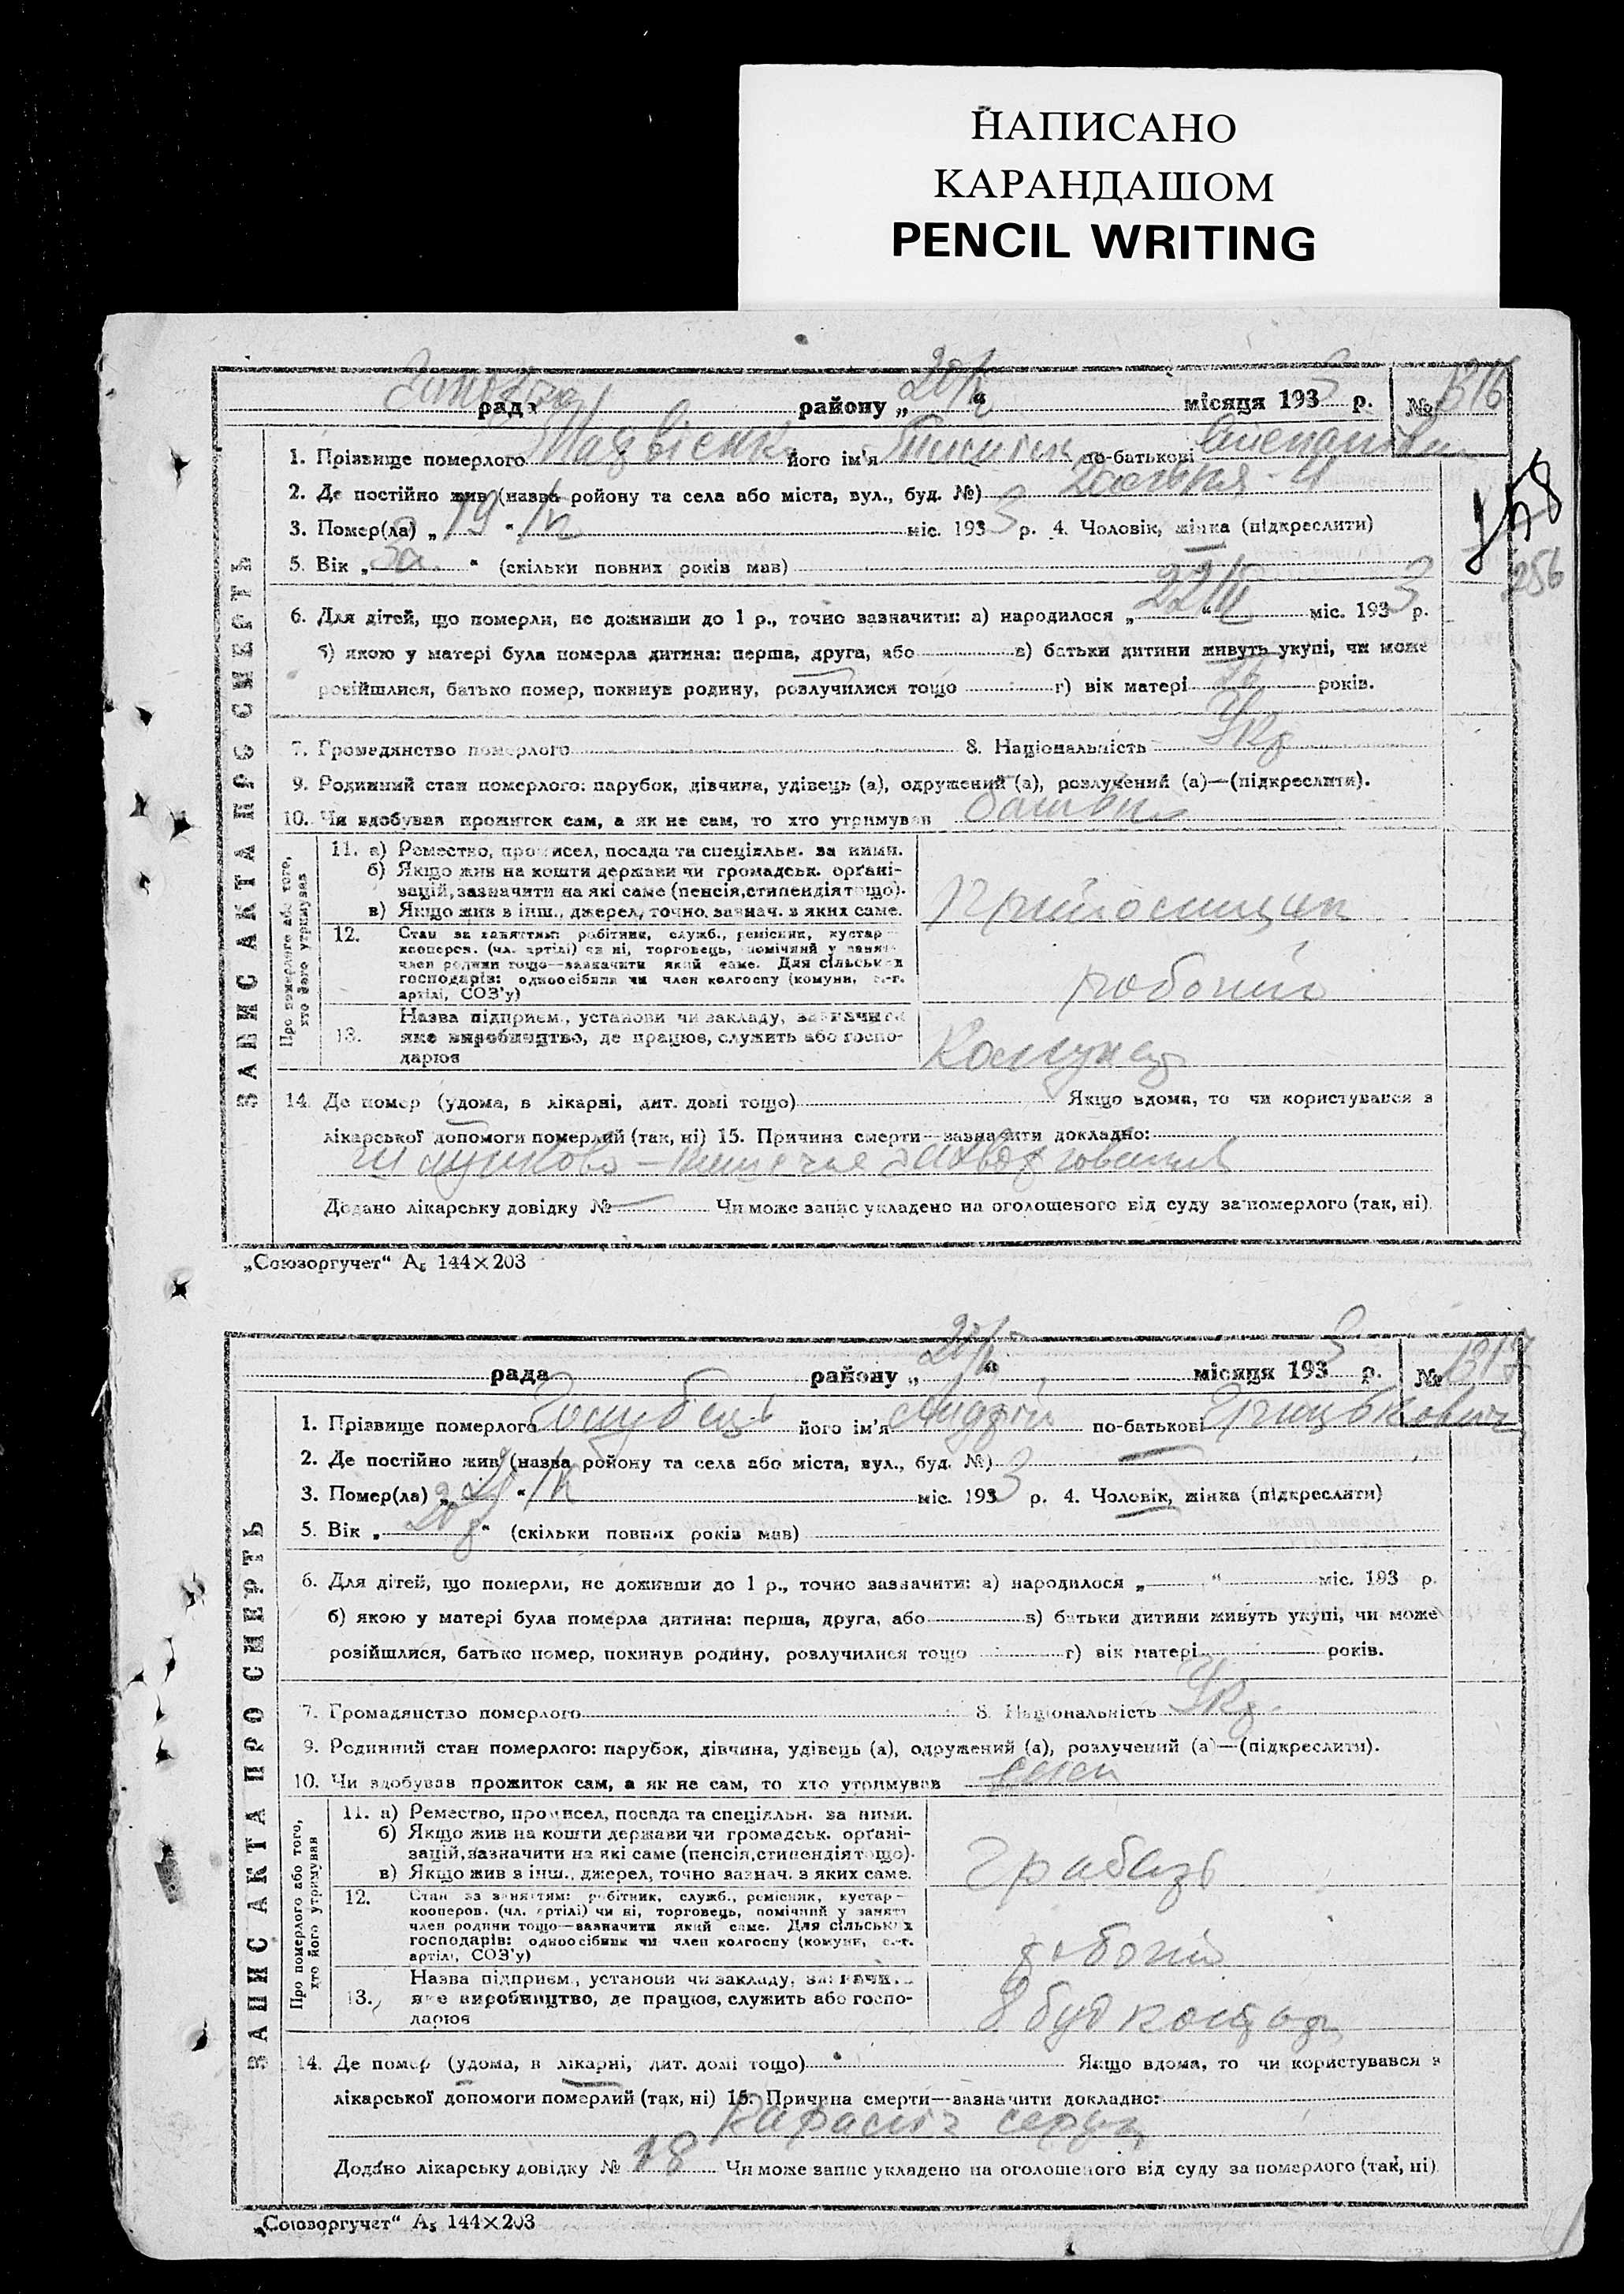 НАПИСАНО
КАРАНДАШОМ
PENCIL WRITING
рада району „20/ “ місяця 1933 р. № 1316
1. Прізвище померлого його ім'я по-батькові
2. Де постійно жив (назва ройону та села або міста, вул., буд. №)
3. Помер(ла) „19“ міс. 1933 р. 4. Чоловік, жінка (підкреслити)
158
5. Вік „ “ (скільки повних років мав)
256
6. Для дітей, що померли, не доживши до 1 р., точно зазначити: а) народилося „22/ “ міс. 1933 р.
б) якою у матері була померла дитина: перша, друга, або в) батьки дитини живуть укупі, чи може
розійшлися, батько помер, покинув родину, розлучилися тощо г) вік матері років.
7. Громадянство померлого 8. Національність Укр
9. Родинний стан померлого: парубок, дівчина, удівець (а), одружений (а), розлучений (а)—(підкреслити).
10. Чи здобував прожиток сам, а як не сам, то хто утримував батьки
ЗАПИС АКТА ПРО СМЕРТЬ
Про померлого або того,
хто його утримував
11. а) Ремество, промисел, посада та спеціяльн. за ними.
б) Якщо жив на кошти держави чи громадськ. орґані-
зацій, зазначити на які саме (пенсія, стипендія тощо).
в) Якщо жив в інш., джерел, точно зазнач. з яких саме.
12. Стан за заняттям: робітник, служб., ремісник, кустар—
кооперов. (чл. артілі) чи ні, торговець, помічний у занятт
член родини тощо—зазначити який саме. Для сільських
господарів: одноосібник чи член колгоспу (комуни, с.-г.
артілі, СОЗ'у)
робочий
13. Назва підприєм., установи чи закладу, зазначити
яке виробництво, де працює, служить або госпо-
дарює
14. Де помер (удома, в лікарні, дит. домі тощо) Якщо вдома, то чи користувався з
лікарської допомоги померлий (так, ні) 15. Причина смерти—зазначити докладно:
Додано лікарську довідку № — Чи може запис укладено на оголошеного від суду за померлого (так, ні).
„Союзоргучет“ А₅ 144×203
рада району „20/ “ місяця 1933 р. № 1317
1. Прізвище померлого Голубець його ім'я Андрій по-батькові Грицькович
2. Де постійно жив (назва ройону та села або міста, вул., буд. №) —
3. Помер(ла) „ “ міс. 1933 р. 4. Чоловік, жінка (підкреслити)
5. Вік „ “ (скільки повних років мав)
6. Для дітей, що померли, не доживши до 1 р., точно зазначити: а) народилося „ “ міс. 193 р.
б) якою у матері була померла дитина: перша, друга, або в) батьки дитини живуть укупі, чи може
розійшлися, батько помер, покинув родину, розлучилися тощо г) вік матері років.
7. Громадянство померлого 8. Національність Укр.
9. Родинний стан померлого: парубок, дівчина, удівець (а), одружений (а), розлучений (а)—(підкреслити).
10. Чи здобував прожиток сам, а як не сам, то хто утримував сам
ЗАПИС АКТА ПРО СМЕРТЬ
Про померлого або того,
хто його утримував
11. а) Ремество, промисел, посада та спеціяльн. за ними.
б) Якщо жив на кошти держави чи громадськ. орґані-
зацій, зазначити на які саме (пенсія, стипендія тощо).
в) Якщо жив в інш., джерел, точно зазнач. з яких саме.
грабарь
12. Стан за заняттям: робітник, служб., ремісник, кустар—
кооперов. (чл. артілі) чи ні, торговець, помічний у занятт
член родини тощо—зазначити який саме. Для сільських
господарів: одноосібник чи член колгоспу (комуни, с.-г.
артілі, СОЗ'у)
робочий
13. Назва підприєм., установи чи закладу, зазначити
яке виробництво, де працює, служить або госпо-
дарює
14. Де помер (удома, в лікарні, дит. домі тощо) Якщо вдома, то чи користувався з
лікарської допомоги померлий (так, ні) 15. Причина смерти—зазначити докладно:
серця
Додано лікарську довідку № 18 Чи може запис укладено на оголошеного від суду за померлого (так, ні).
„Союзоргучет“ А₅ 144×203